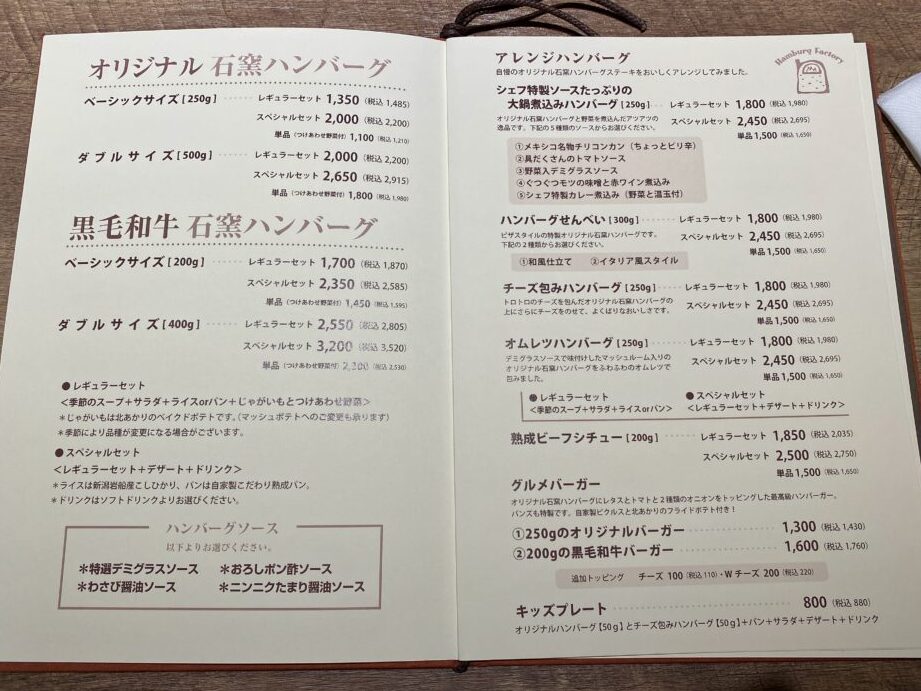 オリジナル 石窯ハンバーグ
ベーシックサイズ [250g] ········ レギュラーセット 1,350 (税込 1,485)
スペシャルセット 2,000 (税込 2,200)
単品 (つけあわせ野菜付) 1,100 (税込 1,210)
ダブルサイズ [500g] ········ レギュラーセット 2,000 (税込 2,200)
スペシャルセット 2,650 (税込 2,915)
単品 (つけあわせ野菜付) 1,800 (税込 1,980)
黒毛和牛 石窯ハンバーグ
ベーシックサイズ [200g] ········ レギュラーセット 1,700 (税込 1,870)
スペシャルセット 2,350 (税込 2,585)
単品 (つけあわせ野菜付) 1,450 (税込 1,595)
ダブルサイズ [400g] ········ レギュラーセット 2,550 (税込 2,805)
スペシャルセット 3,200 (税込 3,520)
単品 (つけあわせ野菜付) 2,300 (税込 2,530)
● レギュラーセット
＜季節のスープ＋サラダ＋ライスorパン＋じゃがいもとつけあわせ野菜＞
＊じゃがいもは北あかりのベイクドポテトです。(マッシュポテトへのご変更も承ります)
＊季節により品種が変更になる場合がございます。
● スペシャルセット
＜レギュラーセット＋デザート＋ドリンク＞
＊ライスは新潟岩船産こしひかり、パンは自家製こだわり熟成パン。
＊ドリンクはソフトドリンクよりお選びください。
ハンバーグソース
以下よりお選びください。
＊特選デミグラスソース ＊おろしポン酢ソース
＊わさび醤油ソース ＊ニンニクたまり醤油ソース
Hamburg Factory
アレンジハンバーグ
自慢のオリジナル石窯ハンバーグステーキをおいしくアレンジしてみました。
シェフ特製ソースたっぷりの
大鍋煮込みハンバーグ [250g] ···· レギュラーセット 1,800 (税込 1,980)
オリジナル石窯ハンバーグと野菜を煮込んだアツアツの スペシャルセット 2,450 (税込 2,695)
逸品です。下記の5種類のソースからお選びください。 単品 1,500 (税込 1,650)
①メキシコ名物チリコンカン（ちょっとピリ辛）
②具だくさんのトマトソース
③野菜入デミグラスソース
④ぐつぐつモツの味噌と赤ワイン煮込み
⑤シェフ特製カレー煮込み（野菜と温玉付）
ハンバーグせんべい [300g] ······ レギュラーセット 1,800 (税込 1,980)
ピザスタイルの特製オリジナル石窯ハンバーグです。 スペシャルセット 2,450 (税込 2,695)
下記の2種類からお選びください。 単品 1,500 (税込 1,650)
①和風仕立て ②イタリア風スタイル
チーズ包みハンバーグ [250g] ······ レギュラーセット 1,800 (税込 1,980)
トロトロのチーズを包んだオリジナル石窯ハンバーグの スペシャルセット 2,450 (税込 2,695)
上にさらにチーズをのせて、よくばりなおいしさです。 単品 1,500 (税込 1,650)
オムレツハンバーグ [250g] ······ レギュラーセット 1,800 (税込 1,980)
デミグラスソースで味付けしたマッシュルーム入りの スペシャルセット 2,450 (税込 2,695)
オリジナル石窯ハンバーグをふわふわのオムレツで 単品 1,500 (税込 1,650)
包みました。
● レギュラーセット ● スペシャルセット
＜季節のスープ＋サラダ＋ライスorパン＞ ＜レギュラーセット＋デザート＋ドリンク＞
熟成ビーフシチュー [200g] ······ レギュラーセット 1,850 (税込 2,035)
スペシャルセット 2,500 (税込 2,750)
単品 1,500 (税込 1,650)
グルメバーガー
オリジナル石窯ハンバーグにレタスとトマトと2種類のオニオンをトッピングした最高級ハンバーガー。
バンズも特製です。自家製ピクルスと北あかりのフライドポテト付き！
①250gのオリジナルバーガー ········ 1,300 (税込 1,430)
②200gの黒毛和牛バーガー ········ 1,600 (税込 1,760)
追加トッピング チーズ 100 (税込 110)・W チーズ 200 (税込 220)
キッズプレート ········ 800 (税込 880)
オリジナルハンバーグ【50g】とチーズ包みハンバーグ【50g】＋パン＋サラダ＋デザート＋ドリンク